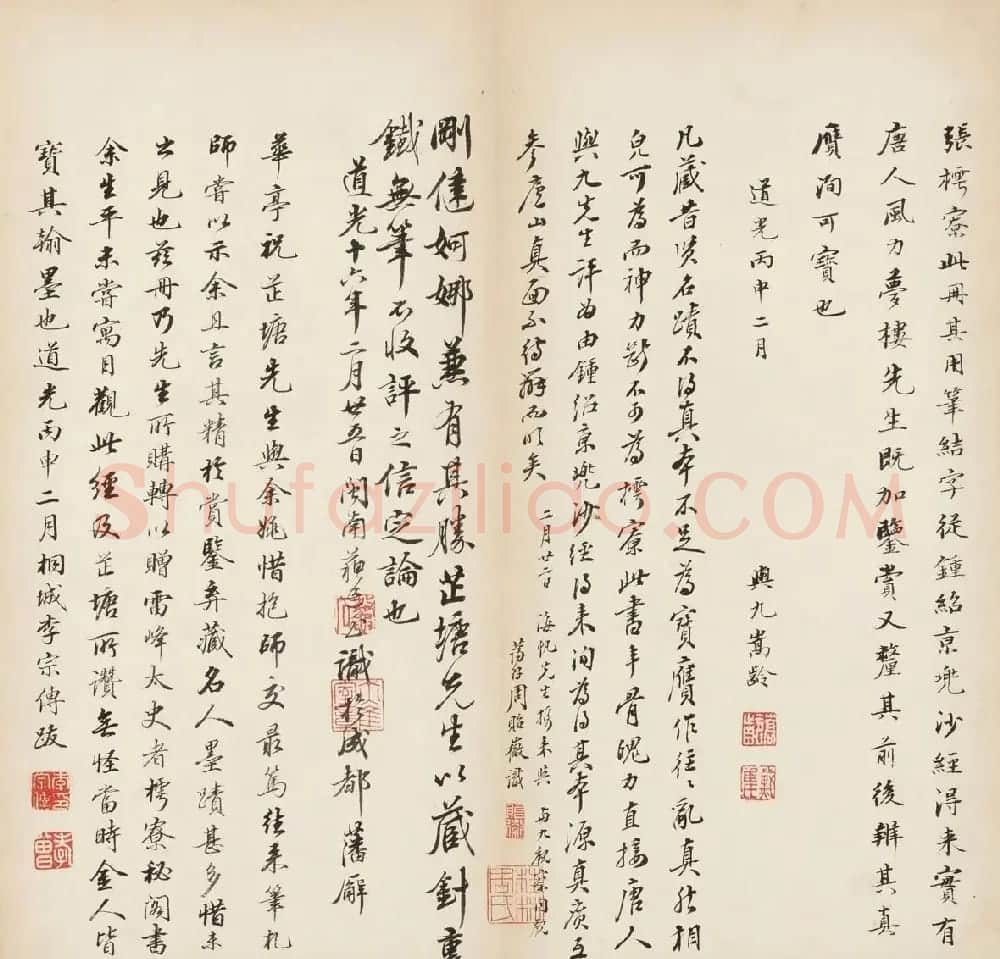 張樗寮此冊其用筆結字從鍾紹京兜沙經得來實有
唐人風力夢樓先生既加鑒賞又釐其前後辨其真
贋洵可寶也
道光丙申二月
與九嵩齡
凡藏昔賢名蹟不得真本不足為寶贋作往往亂真然相
皃可為而神力斷不可為樗寮此書丰骨魄力直接唐人
與九先生評為由鍾紹京兜沙經得來洵為得其本源真廣互
參廬山真面不待辭而明矣
二月廿 日 海帆先生携來與 與九 同觀
周貽徽識
剛健婀娜兼有其勝芷塘先生以藏針畫
鐵無筆不收評之信定論也
道光十六年二月廿五日閩南蘇 識於成都藩廨
華亭祝芷塘先生與余姚惜抱師交最篤往來筆札
師嘗以示余且言其精於賞鑒弆藏名人墨蹟甚多惜未
之見也茲冊乃先生所購轉以贈雷峰太史者樗寮秘閣書
余生平未嘗寓目觀此經及芷塘所讚無怪當時金人皆
寶其翰墨也道光丙申二月桐城李宗傳跋
Shufaziliao.COM